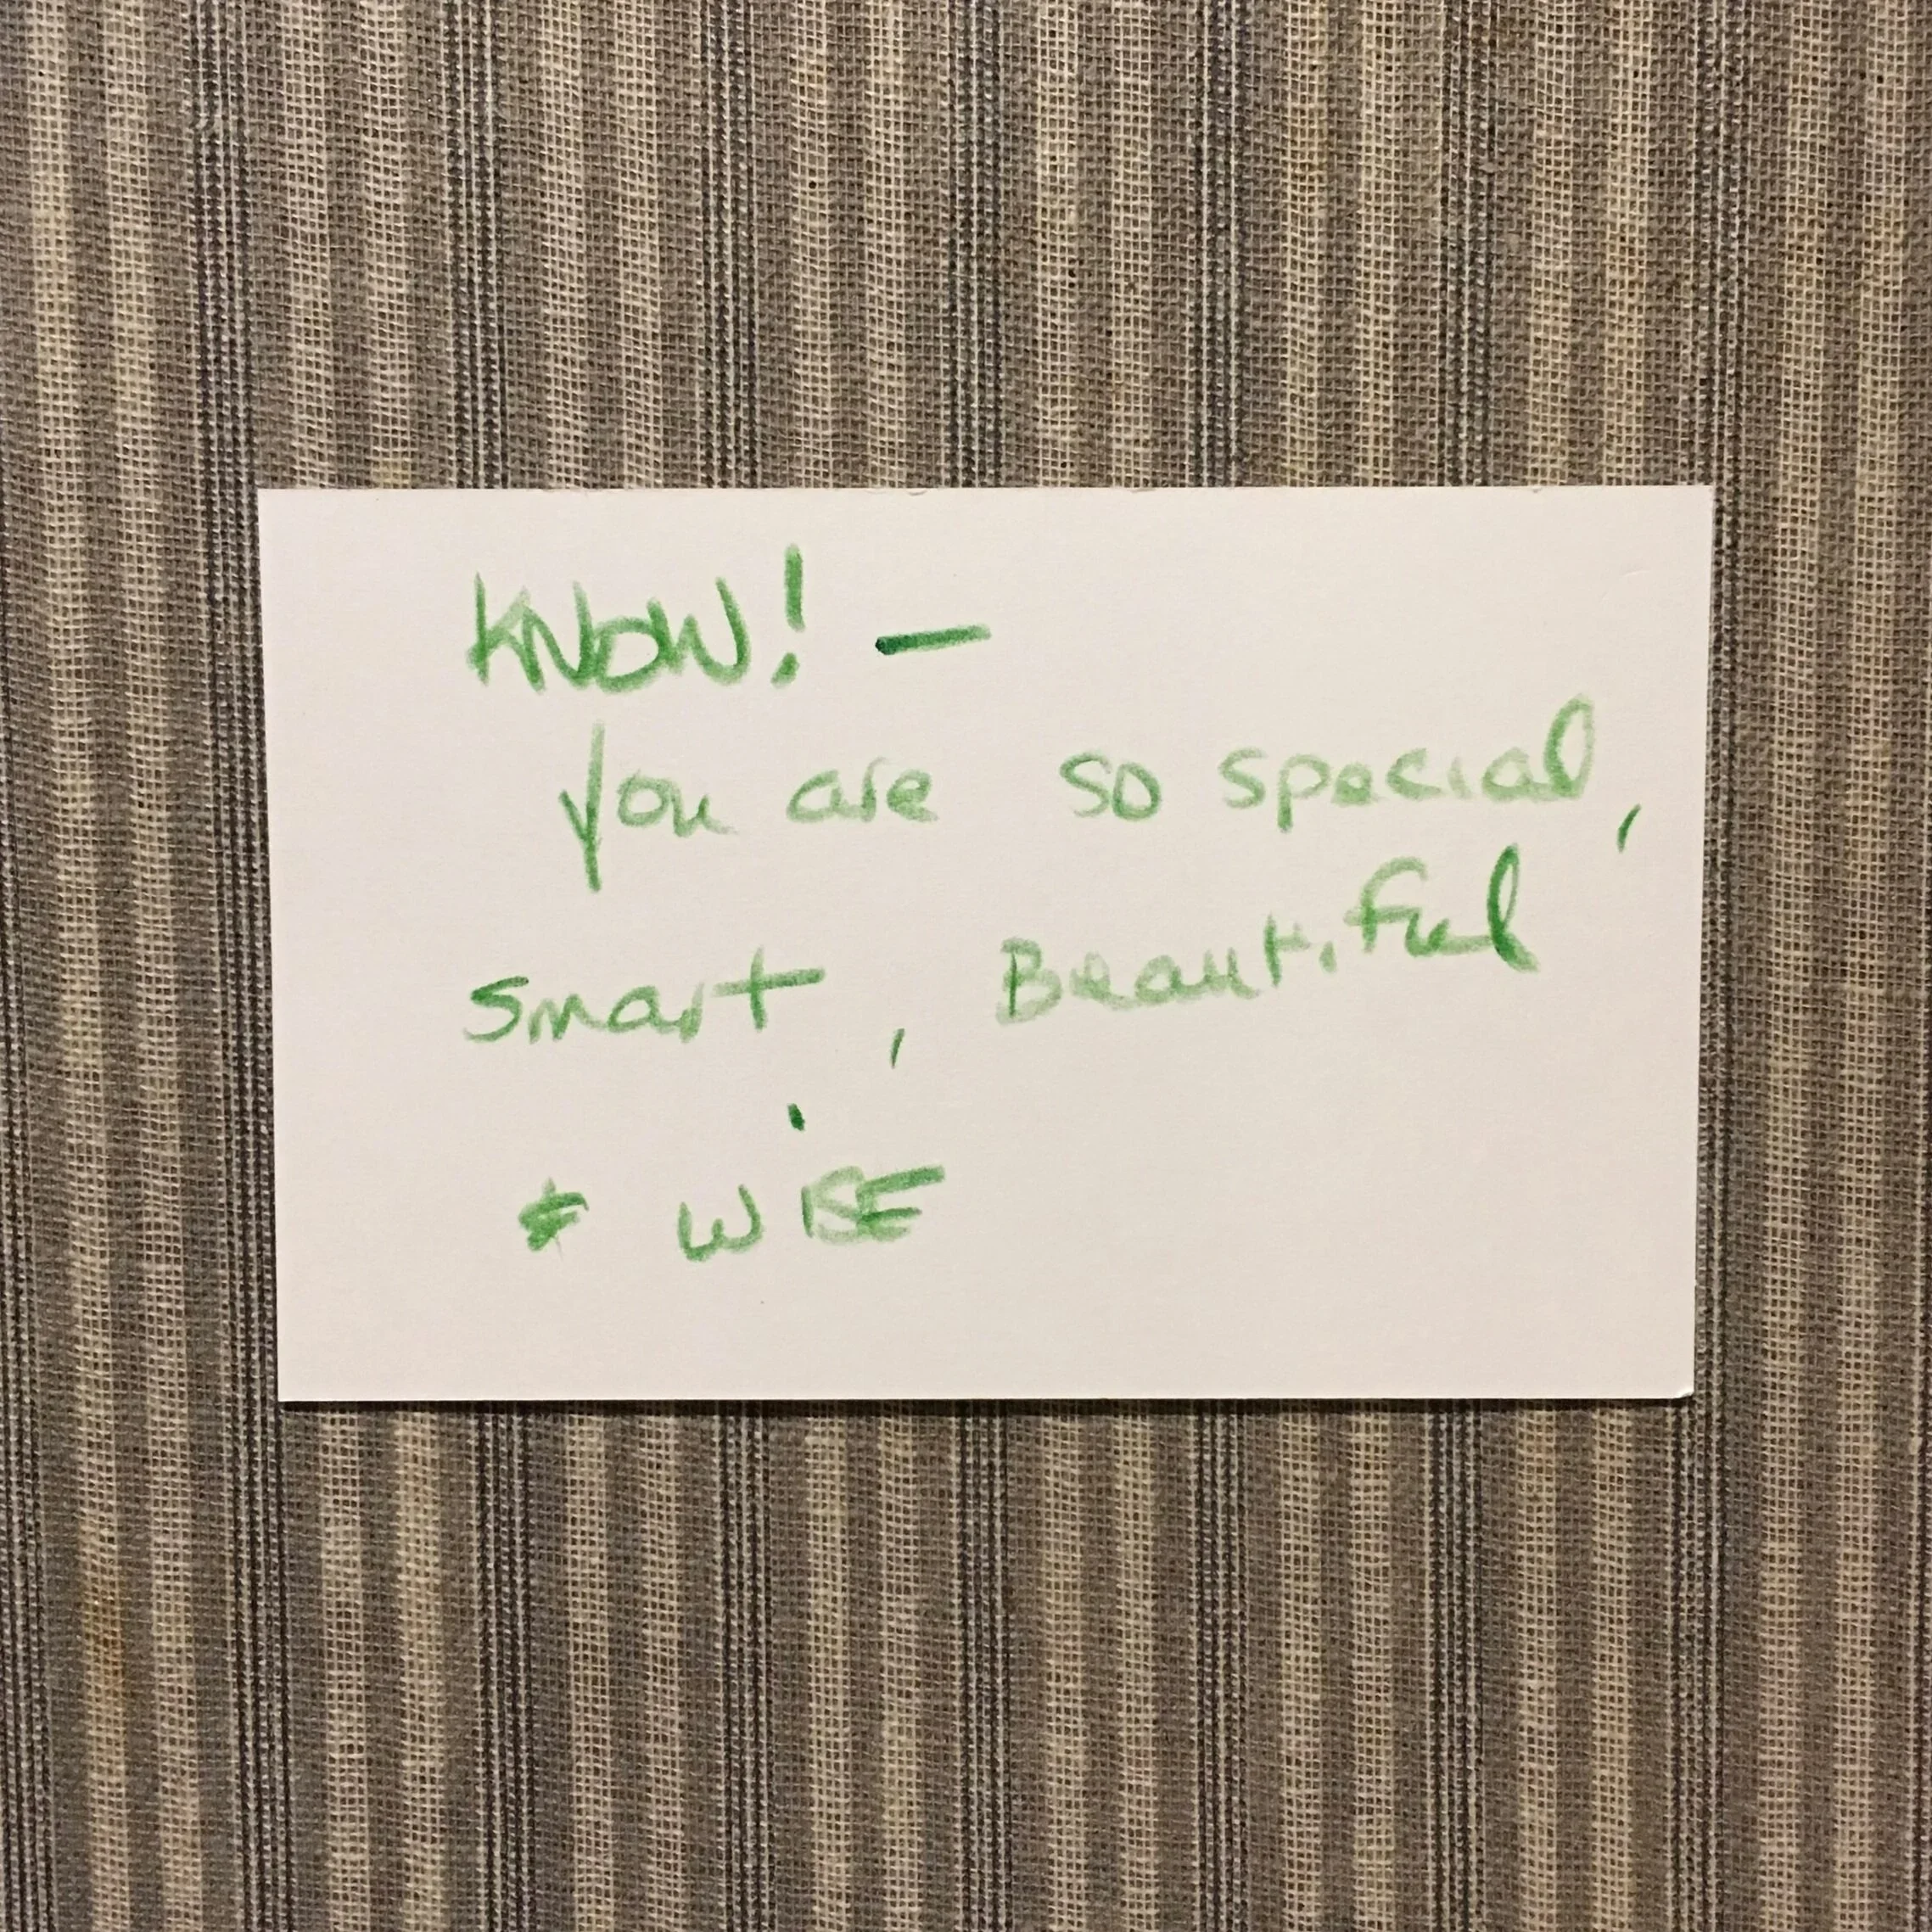 KNOW! —
You are so special,
smart, Beautiful
& WISE